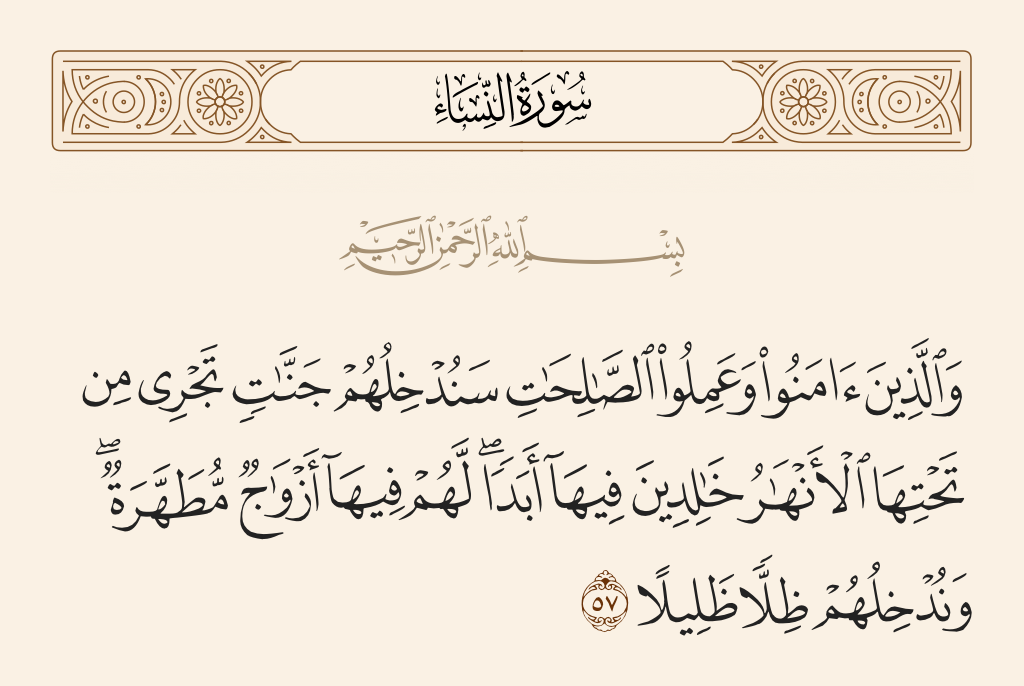 سُورَةُ النِّسَاءِ
بِسْمِ ٱللَّهِ ٱلرَّحْمَٰنِ ٱلرَّحِيمِ
وَٱلَّذِينَ ءَامَنُوا۟ وَعَمِلُوا۟ ٱلصَّـٰلِحَـٰتِ سَنُدْخِلُهُمْ جَنَّـٰتٍ تَجْرِى مِن
تَحْتِهَا ٱلْأَنْهَـٰرُ خَـٰلِدِينَ فِيهَآ أَبَدًا ۖ لَّهُمْ فِيهَآ أَزْوَٰجٌ مُّطَهَّرَةٌ ۖ
وَنُدْخِلُهُمْ ظِلًّا ظَلِيلًا ٥٧